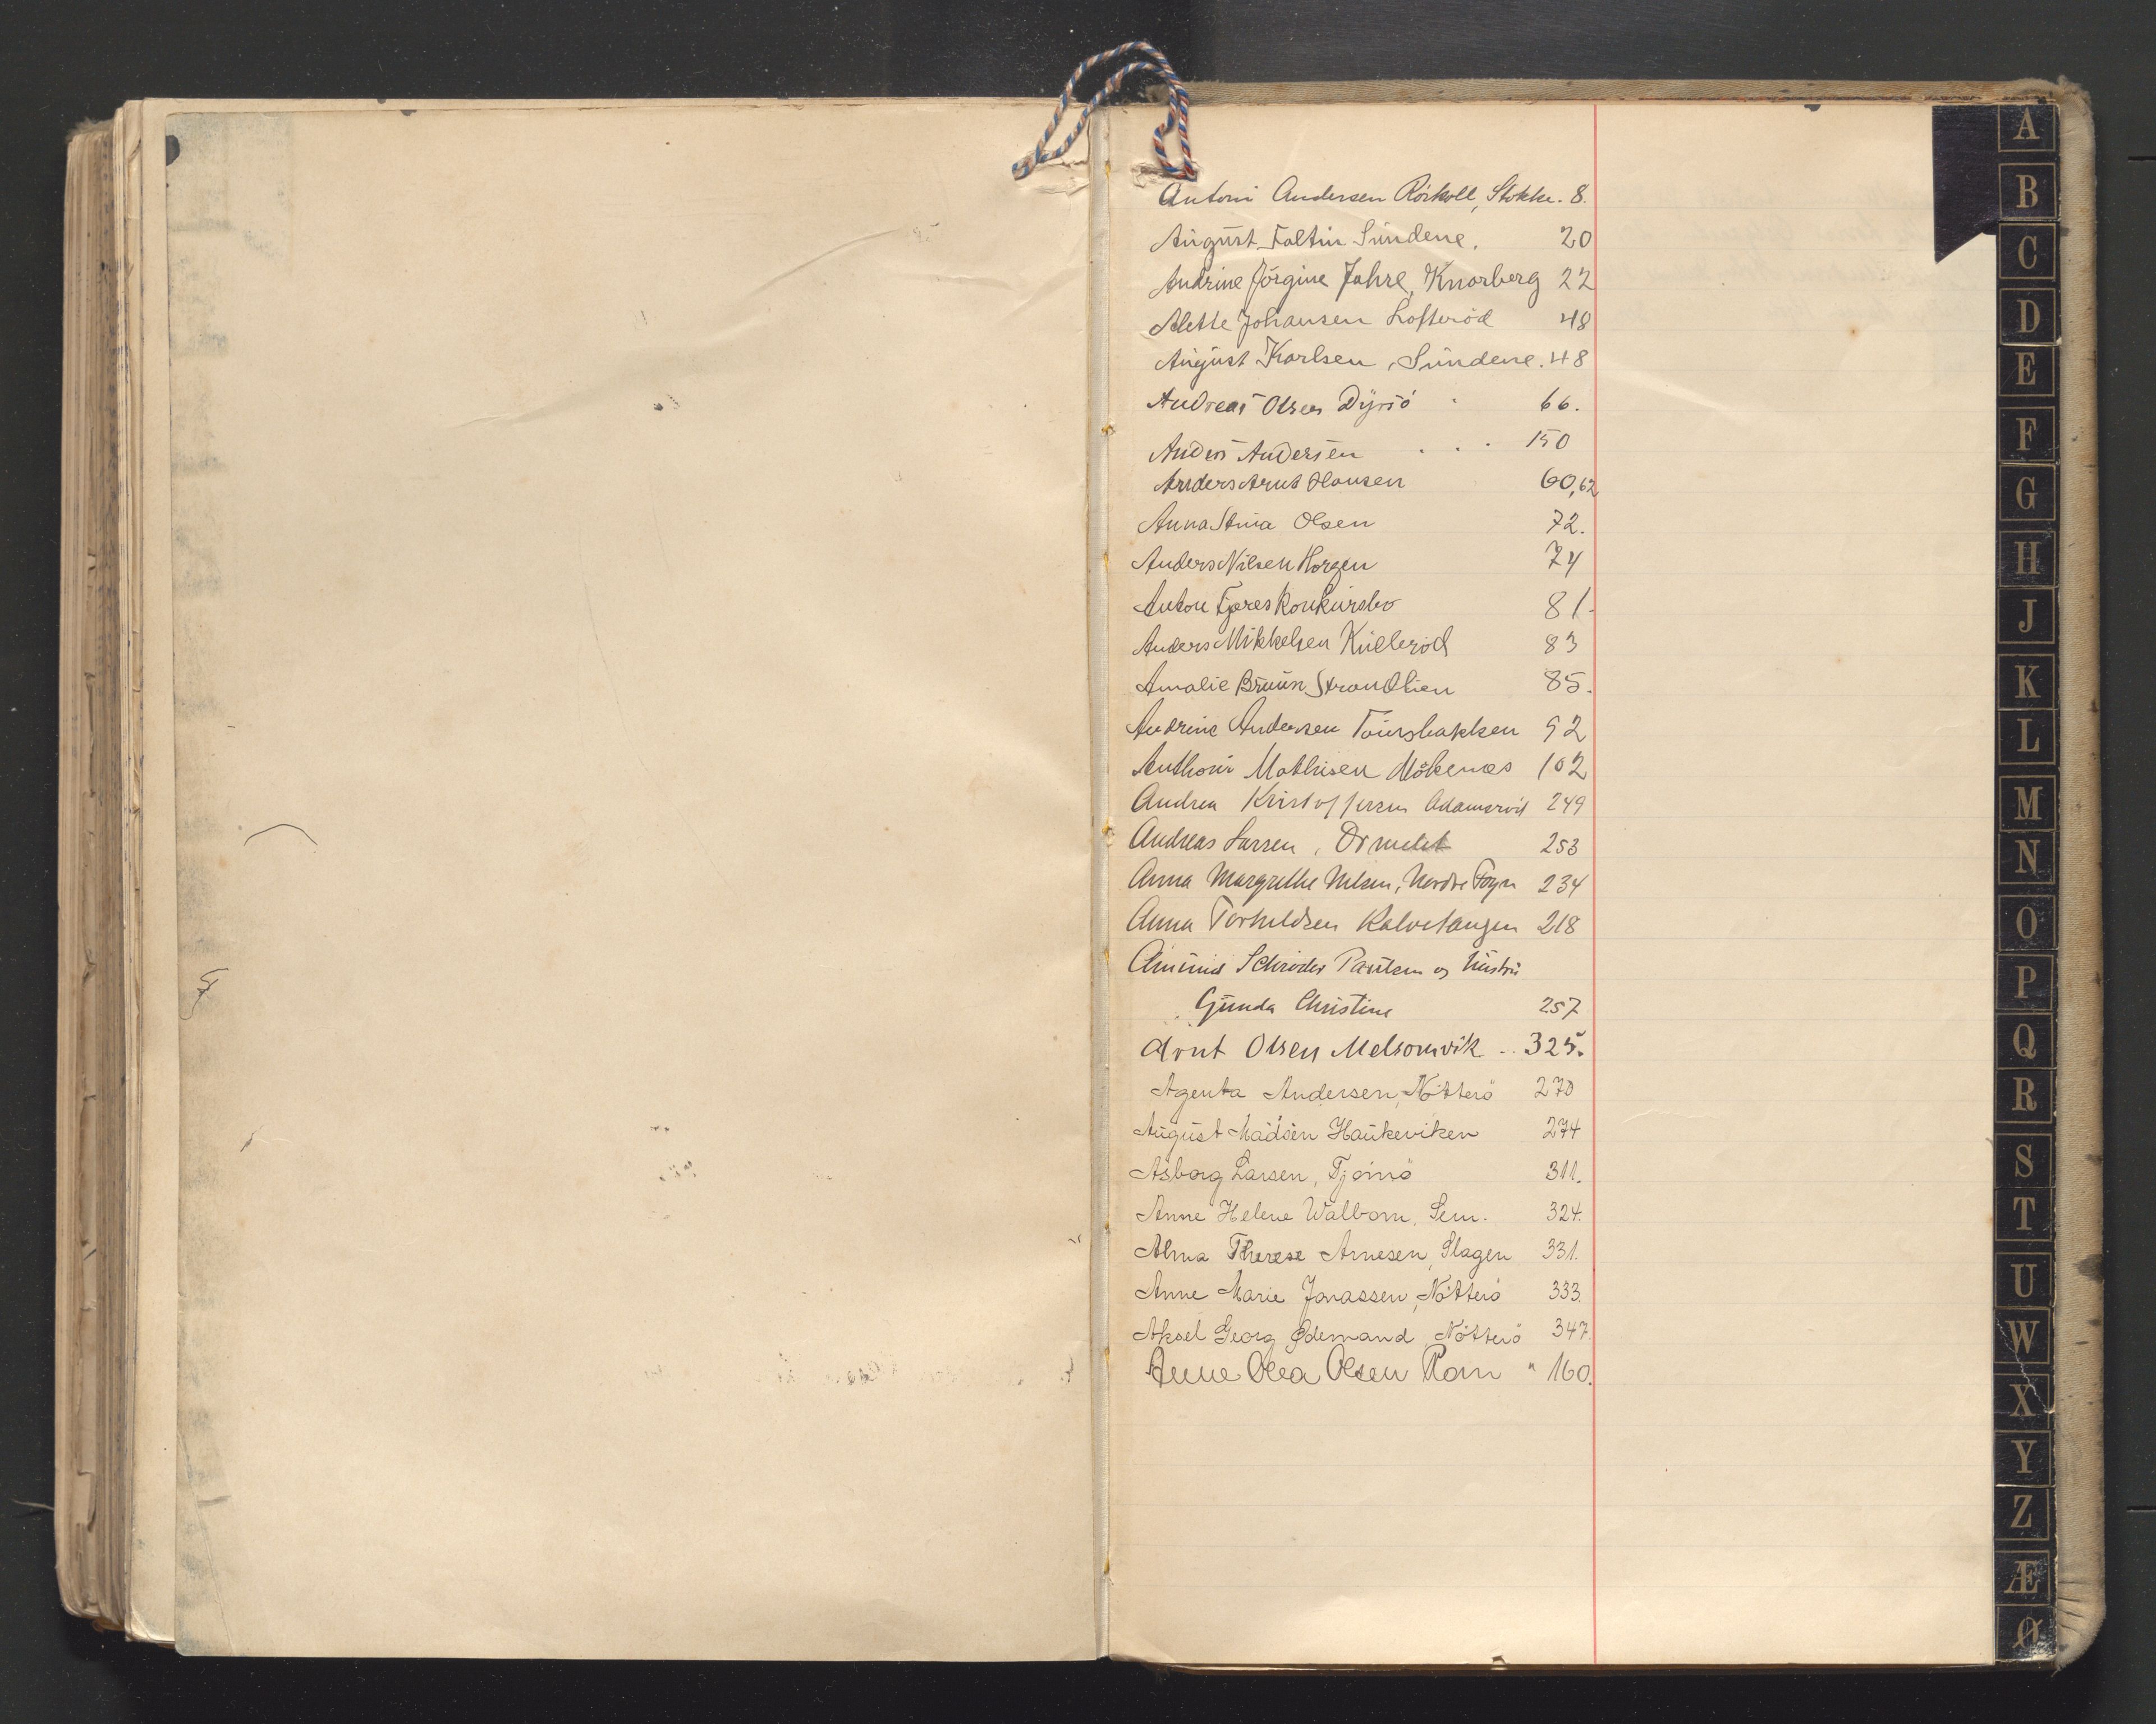 Antoni Andersen Rörkoll, Stokke. 8.
August Foltin Sundene. 20
Andrine Jörgine Jahre, Knarberg 22
Alette Johansen Lofteröd 48
August Karlsen, Sundene. 48
Andreas Olsen Dyrsö 66.
Anders Andersen . . . 150
Anders Arnt Hansen 60,62
Anna Stina Olsen 72.
Anders Nilsen Horgen 74
Anton Fjæres Konkursbo 81.
Anders Mikkelsen Kulleröd 83
Amalie Bruun Strandlien 85.
Andrine Andersen Toursbakken 92
Anthoni Mathisen Mökenæs 102
Andrea Kristoffersen Adamsröd 249
Andreas Larsen, Ormelet 253
Anna Margrethe Nilsen, Nordre Foyn 234
Anna Torkildsen Kalvetangen 218
Schröder Paulsen og hustru
Gunda Christine 257
Arnt Olsen Melsomvik .. 325.
Agenta Andersen, Nötterö 270
August Madsen Haukeviken 274
Asborg Larsen, Tjömö 311.
Anne Helene Walbom, Sem. 324.
Alma Therese Arnesen, Slagen 331.
Anne Marie Jonassen, Nötterö 333.
Aksel Georg Ødemand, Nötterö 347.
Anne Olea Olsen Ram " 160.
A
B
C
D
E
F
G
H
J
K
L
M
N
O
P
Q
R
S
T
U
W
X
Y
Z
Æ
Ø